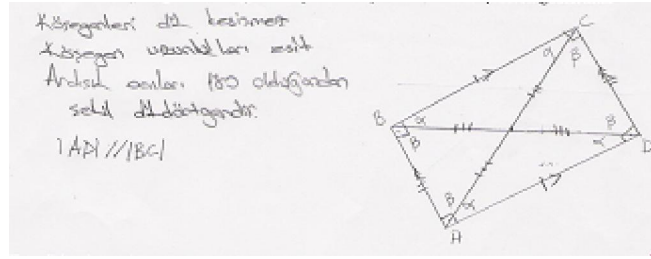 Köşegenleri dik kesişmez
Köşegen uzunlukları eşit
Ardışık açıları 180 olduğundan
şekil dikdörtgendir.
|AD| // |BC|
C
α β
B α
β
β
α D
β α
A